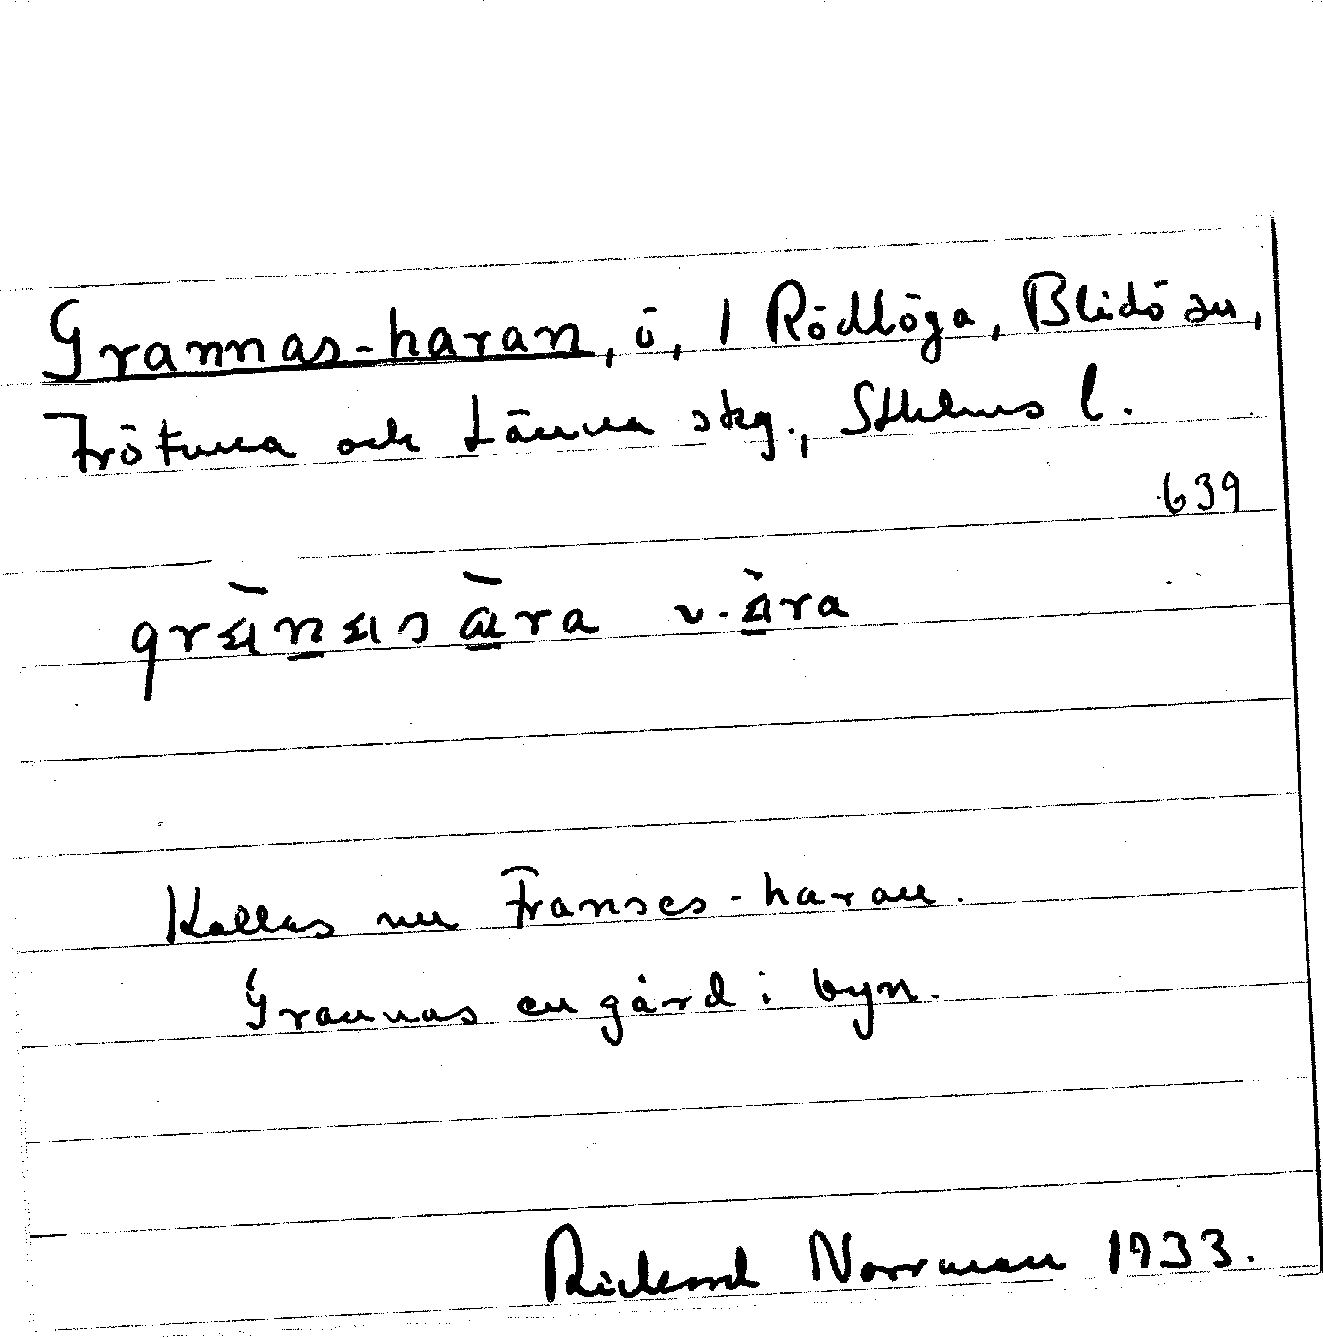 Grannas-haran, ö, 1 Rödlöga, Blidö sn,
Frötuna och Länna skg., Sthlms l.
639
v.
Kallas nu Franses-haran.
Grannas en gård i byn.
Rickard Norrman 1933.